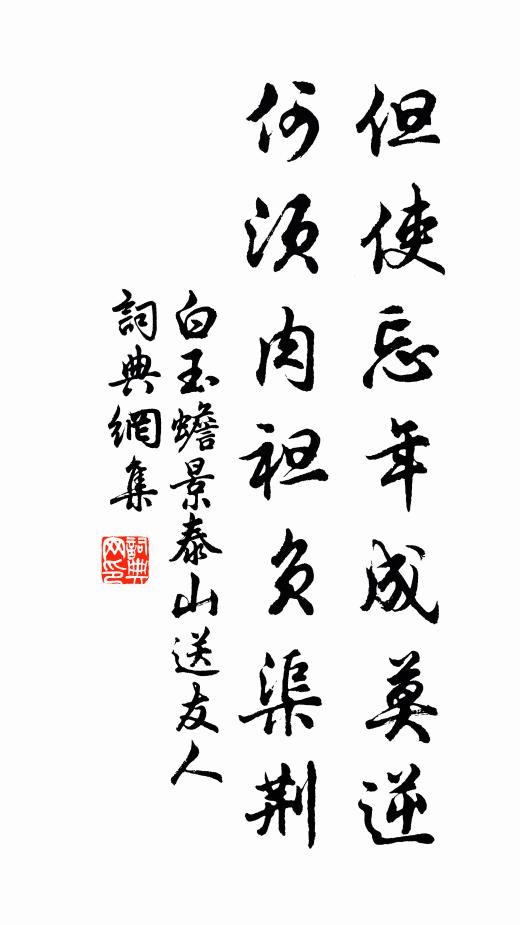 但使忘年成莫逆
何须肉袒负渠荆
白玉蟾景泰山送友人
詞典網集
詞典网印